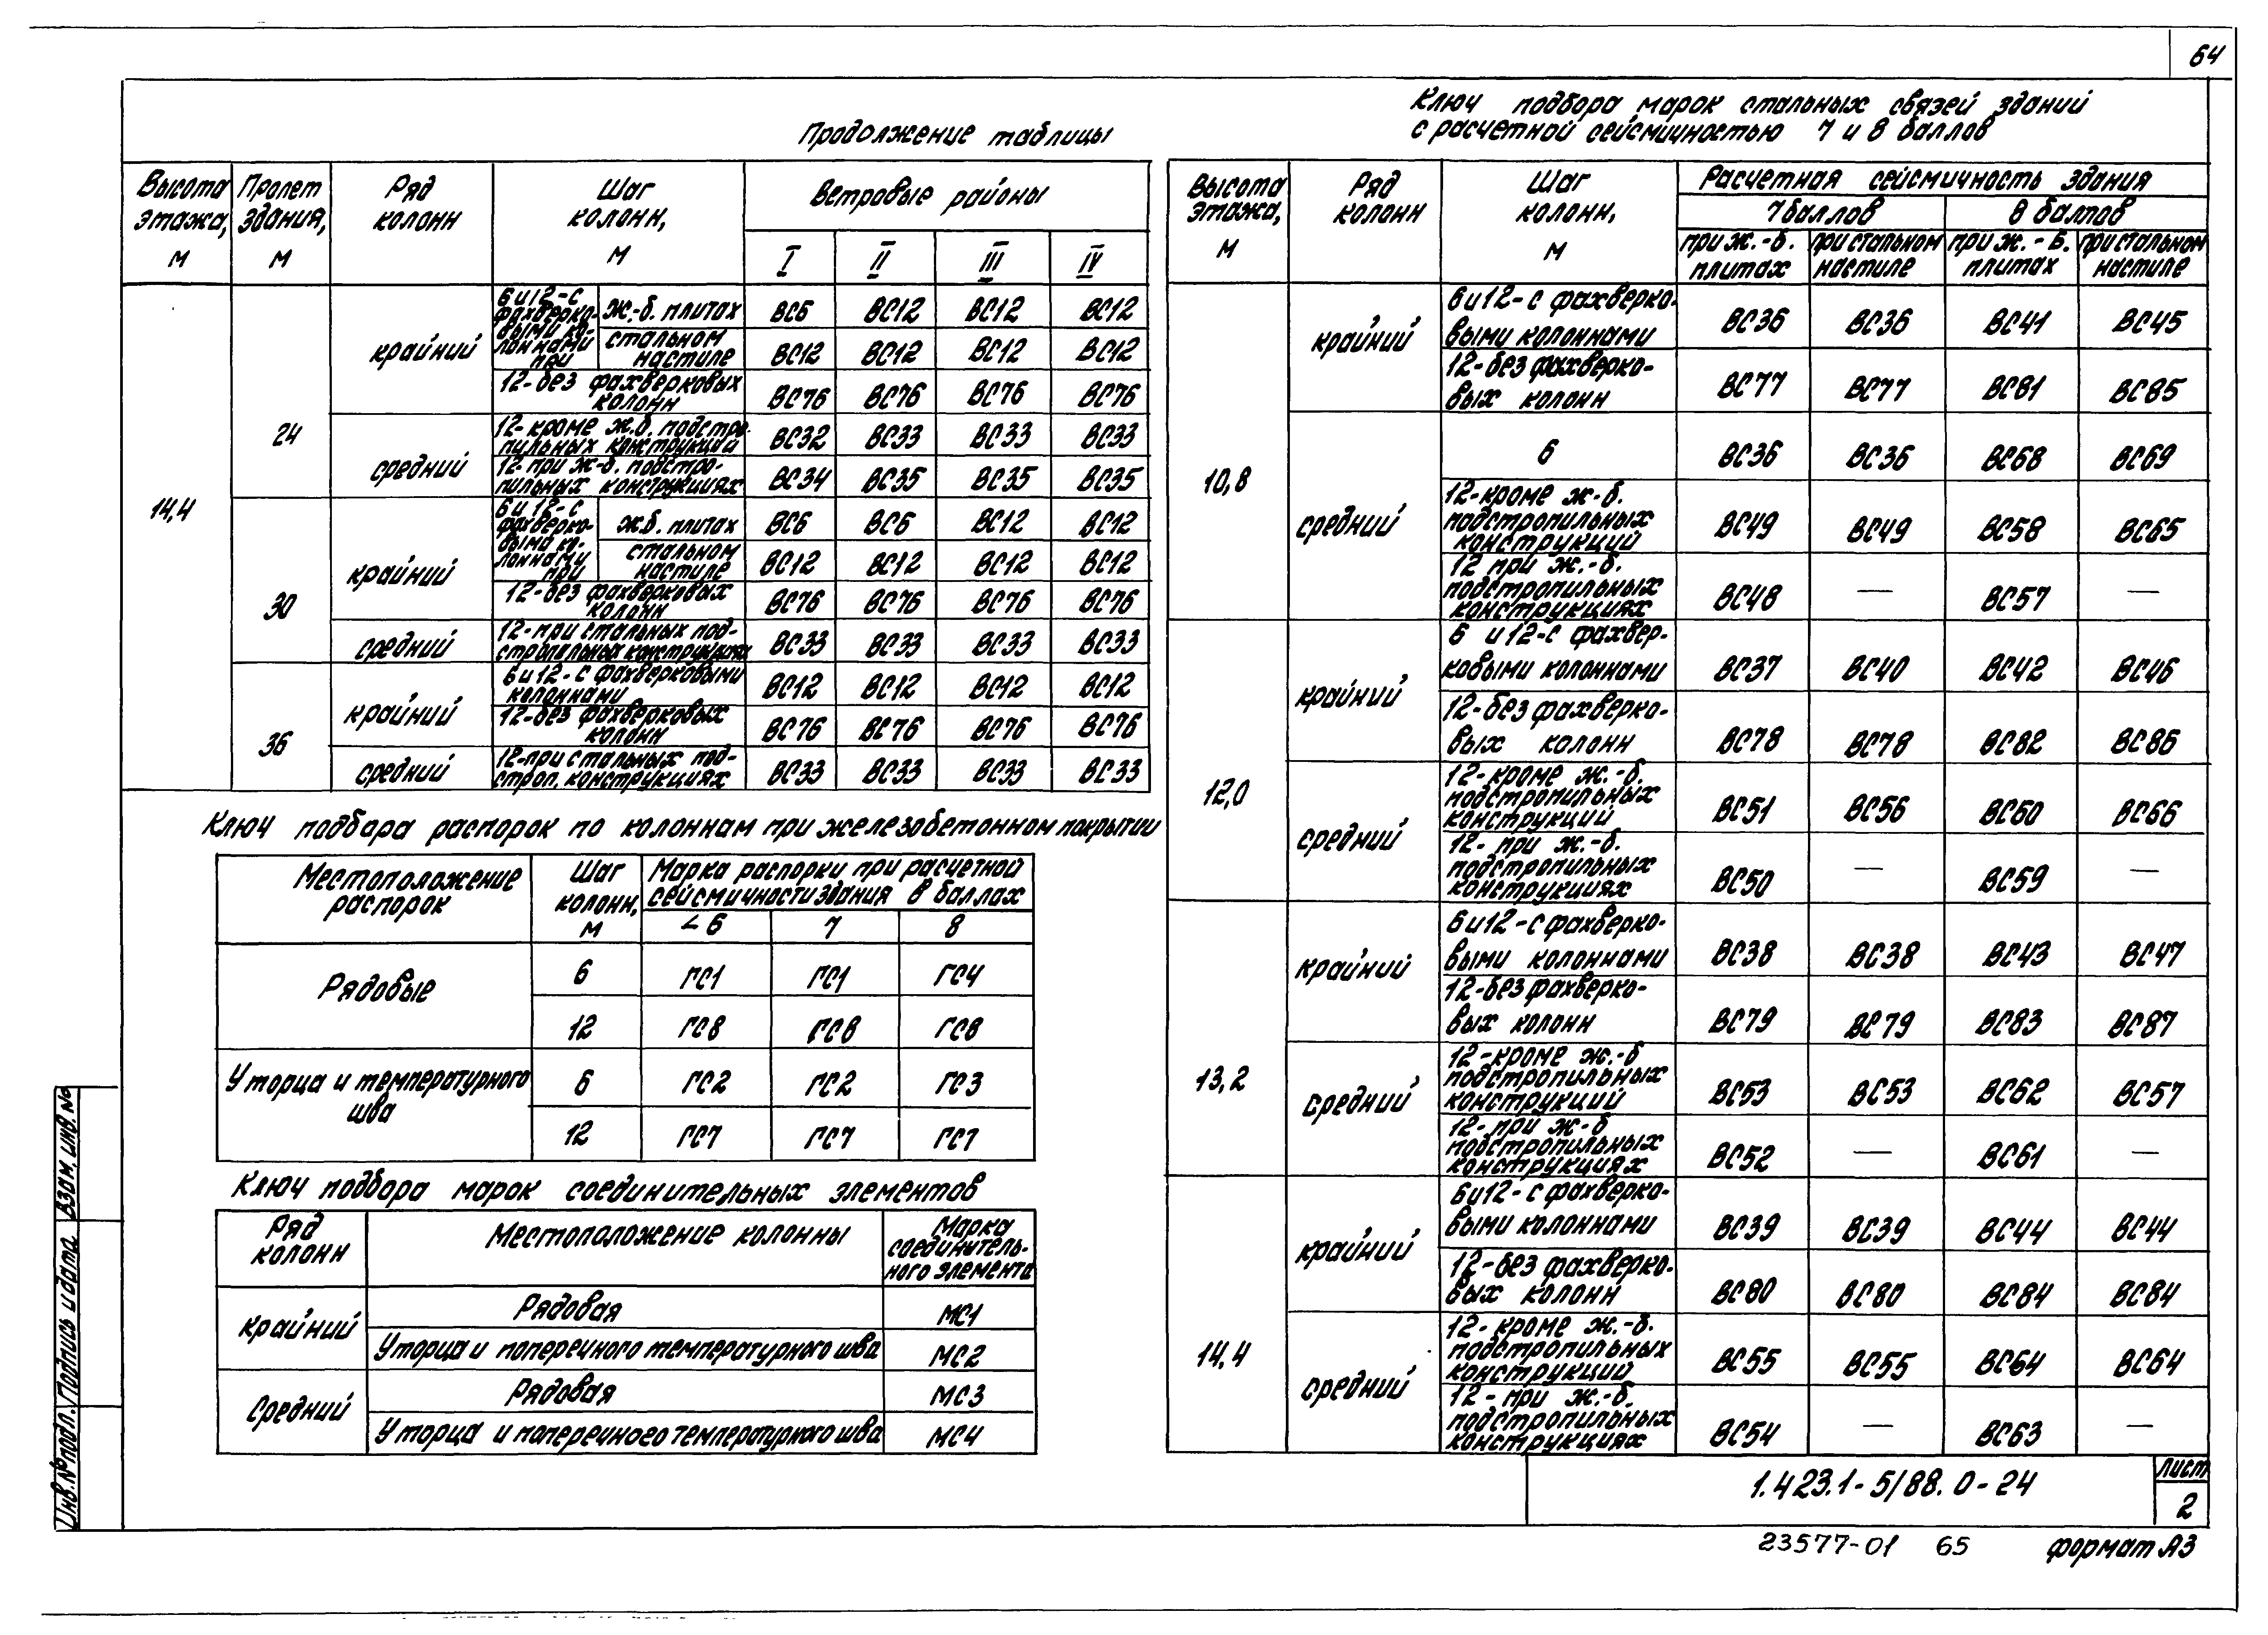 64
Продолжение таблицы
Высота этажа, м | Пролет здания, м | Ряд колонн | Шаг колонн, м | Ветровые районы
I | II | III | IV
14,4 | 24 | крайний | 6 и 12-с фахверковыми колоннами при | ж.-б. плитах | ВС6 | ВС12 | ВС12 | ВС12
стальном настиле | ВС12 | ВС12 | ВС12 | ВС12
12-без фахверковых колонн | ВС76 | ВС76 | ВС76 | ВС76
средний | 12-кроме ж.б. подстропильных конструкций | ВС32 | ВС33 | ВС33 | ВС33
12-при ж-б. подстропильных конструкциях | ВС34 | ВС35 | ВС35 | ВС35
30 | крайний | 6 и 12-с фахверковыми колоннами при | ж.б. плитах | ВС6 | ВС6 | ВС12 | ВС12
стальном настиле | ВС12 | ВС12 | ВС12 | ВС12
12-без фахверковых колонн | ВС76 | ВС76 | ВС76 | ВС76
средний | 12-при стальных подстропильных конструкциях | ВС33 | ВС33 | ВС33 | ВС33
36 | крайний | 6 и 12-с фахверковыми колоннами | ВС12 | ВС12 | ВС12 | ВС12
12-без фахверковых колонн | ВС76 | ВС76 | ВС76 | ВС76
средний | 12-при стальных подстроп. конструкциях | ВС33 | ВС33 | ВС33 | ВС33
Ключ подбора распорок по колоннам при железобетонном покрытии
Местоположение распорок | Шаг колонн, м | Марка распорки при расчетной сейсмичности здания в баллах
< 6 | 7 | 8
Рядовые | 6 | ГС1 | ГС1 | ГС4
12 | ГС8 | ГС8 | ГС8
У торца и температурного шва | 6 | ГС2 | ГС2 | ГС3
12 | ГС7 | ГС7 | ГС7
Ключ подбора марок соединительных элементов
Ряд колонн | Местоположение колонны | Марка соединительного элемента
Крайний | Рядовая | МС1
У торца и поперечного температурного шва | МС2
Средний | Рядовая | МС3
У торца и поперечного температурного шва | МС4
Ключ подбора марок стальных связей зданий
с расчетной сейсмичностью 7 и 8 баллов
Высота этажа, м | Ряд колонн | Шаг колонн, м | Расчетная сейсмичность здания
7 баллов | 8 баллов
при ж.-б. плитах | при стальном настиле | при ж.-б. плитах | при стальном настиле
10,8 | крайний | 6 и 12-с фахверковыми колоннами | ВС36 | ВС36 | ВС41 | ВС45
12-без фахверковых колонн | ВС77 | ВС77 | ВС81 | ВС85
средний | 6 | ВС36 | ВС36 | ВС68 | ВС69
12-кроме ж-б. подстропильных конструкций | ВС49 | ВС49 | ВС58 | ВС65
12 при ж.-б. подстропильных конструкциях | ВС48 | — | ВС57 | —
12,0 | крайний | 6 и 12-с фахверковыми колоннами | ВС37 | ВС40 | ВС42 | ВС46
12-без фахверковых колонн | ВС78 | ВС78 | ВС82 | ВС86
средний | 12-кроме ж.-б. подстропильных конструкций | ВС51 | ВС56 | ВС60 | ВС66
12-при ж.-б. подстропильных конструкциях | ВС50 | — | ВС59 | —
13,2 | крайний | 6 и 12-с фахверковыми колоннами | ВС38 | ВС38 | ВС43 | ВС47
12-без фахверковых колонн | ВС79 | ВС79 | ВС83 | ВС87
средний | 12-кроме ж.-б подстропильных конструкций | ВС53 | ВС53 | ВС62 | ВС57
12-при ж-б подстропильных конструкциях | ВС52 | — | ВС61 | —
14,4 | крайний | 6 и 12-с фахверковыми колоннами | ВС39 | ВС39 | ВС44 | ВС44
12-без фахверковых колонн | ВС80 | ВС80 | ВС84 | ВС84
средний | 12-кроме ж.-б. подстропильных конструкций | ВС55 | ВС55 | ВС64 | ВС64
12-при ж.-б. подстропильных конструкциях | ВС54 | — | ВС63 | —
Инв.№ подл. | Подпись и дата | Взам. инв. №
1.423.1-5/88.0-24
Лист
2
23577-01 65 формат А3